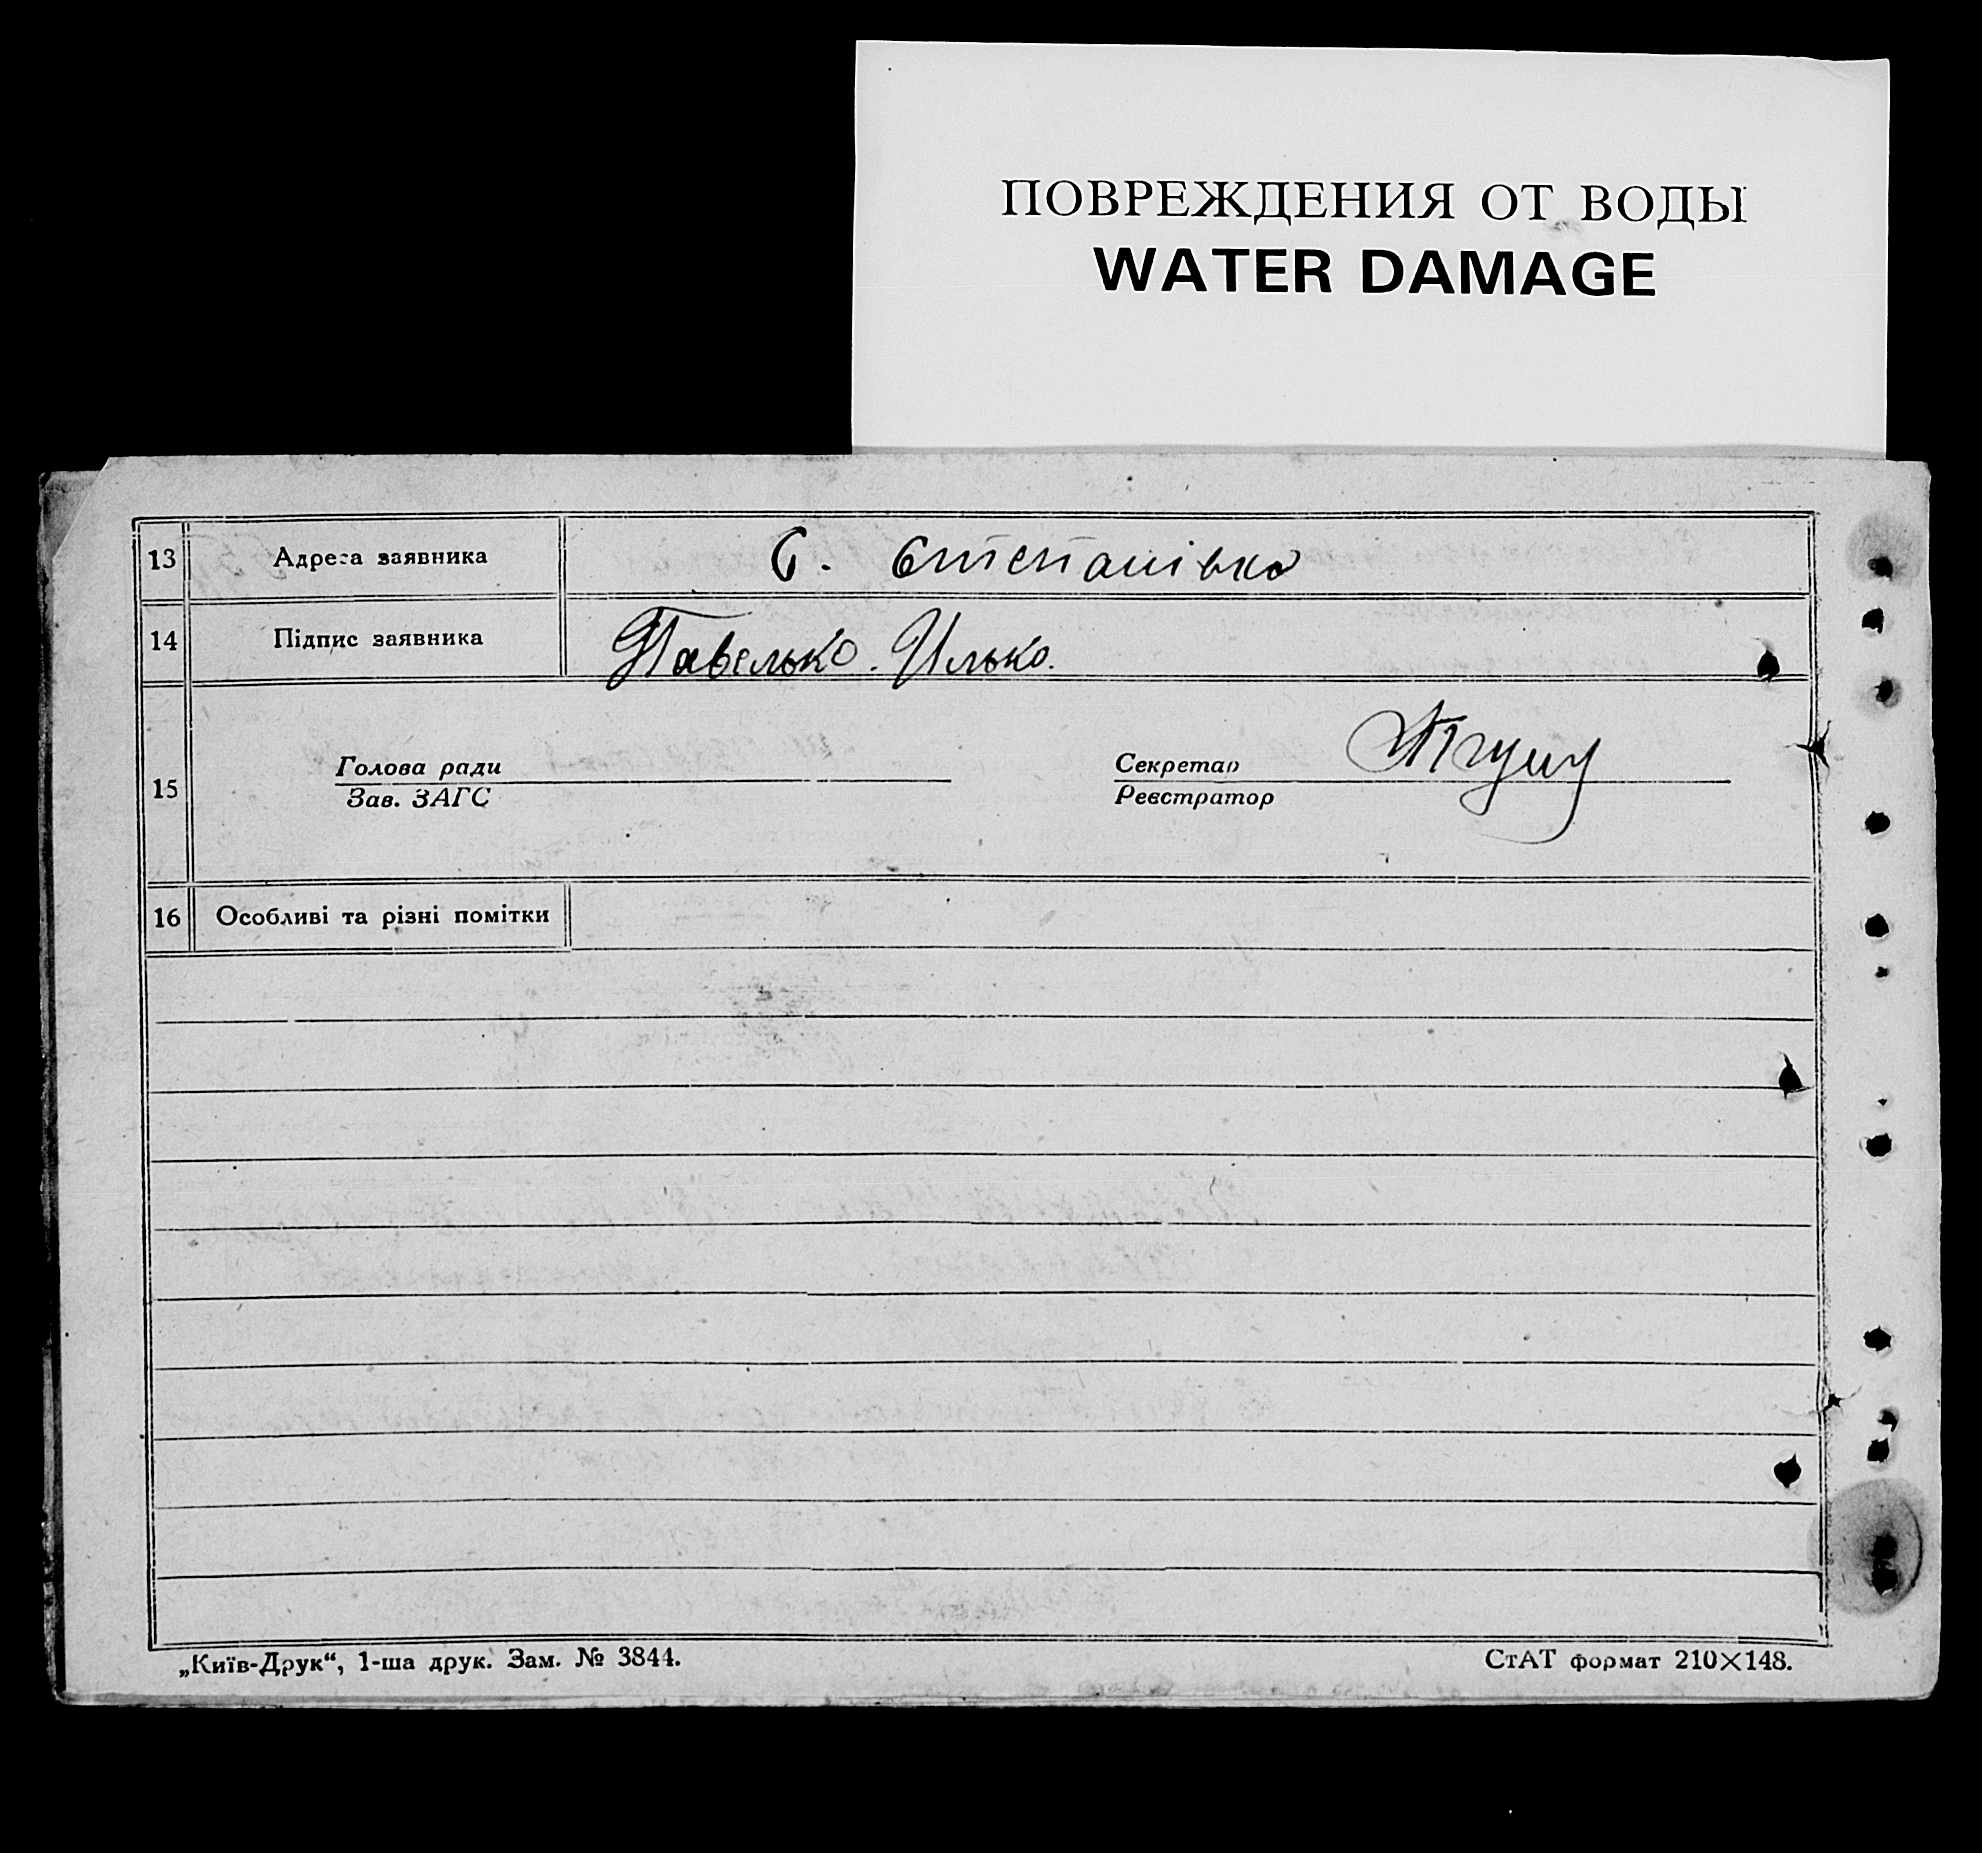 ПОВРЕЖДЕНИЯ ОТ ВОДЫ
WATER DAMAGE
13 Адреса заявника С. Степанівка
14 Підпис заявника Павелько. Илько.
15
Голова ради Секретар
Зав. ЗАГС Реєстратор
16 Особливі та різні помітки
„Київ-Друк“, 1-ша друк. Зам. № 3844. СтАТ формат 210×148.